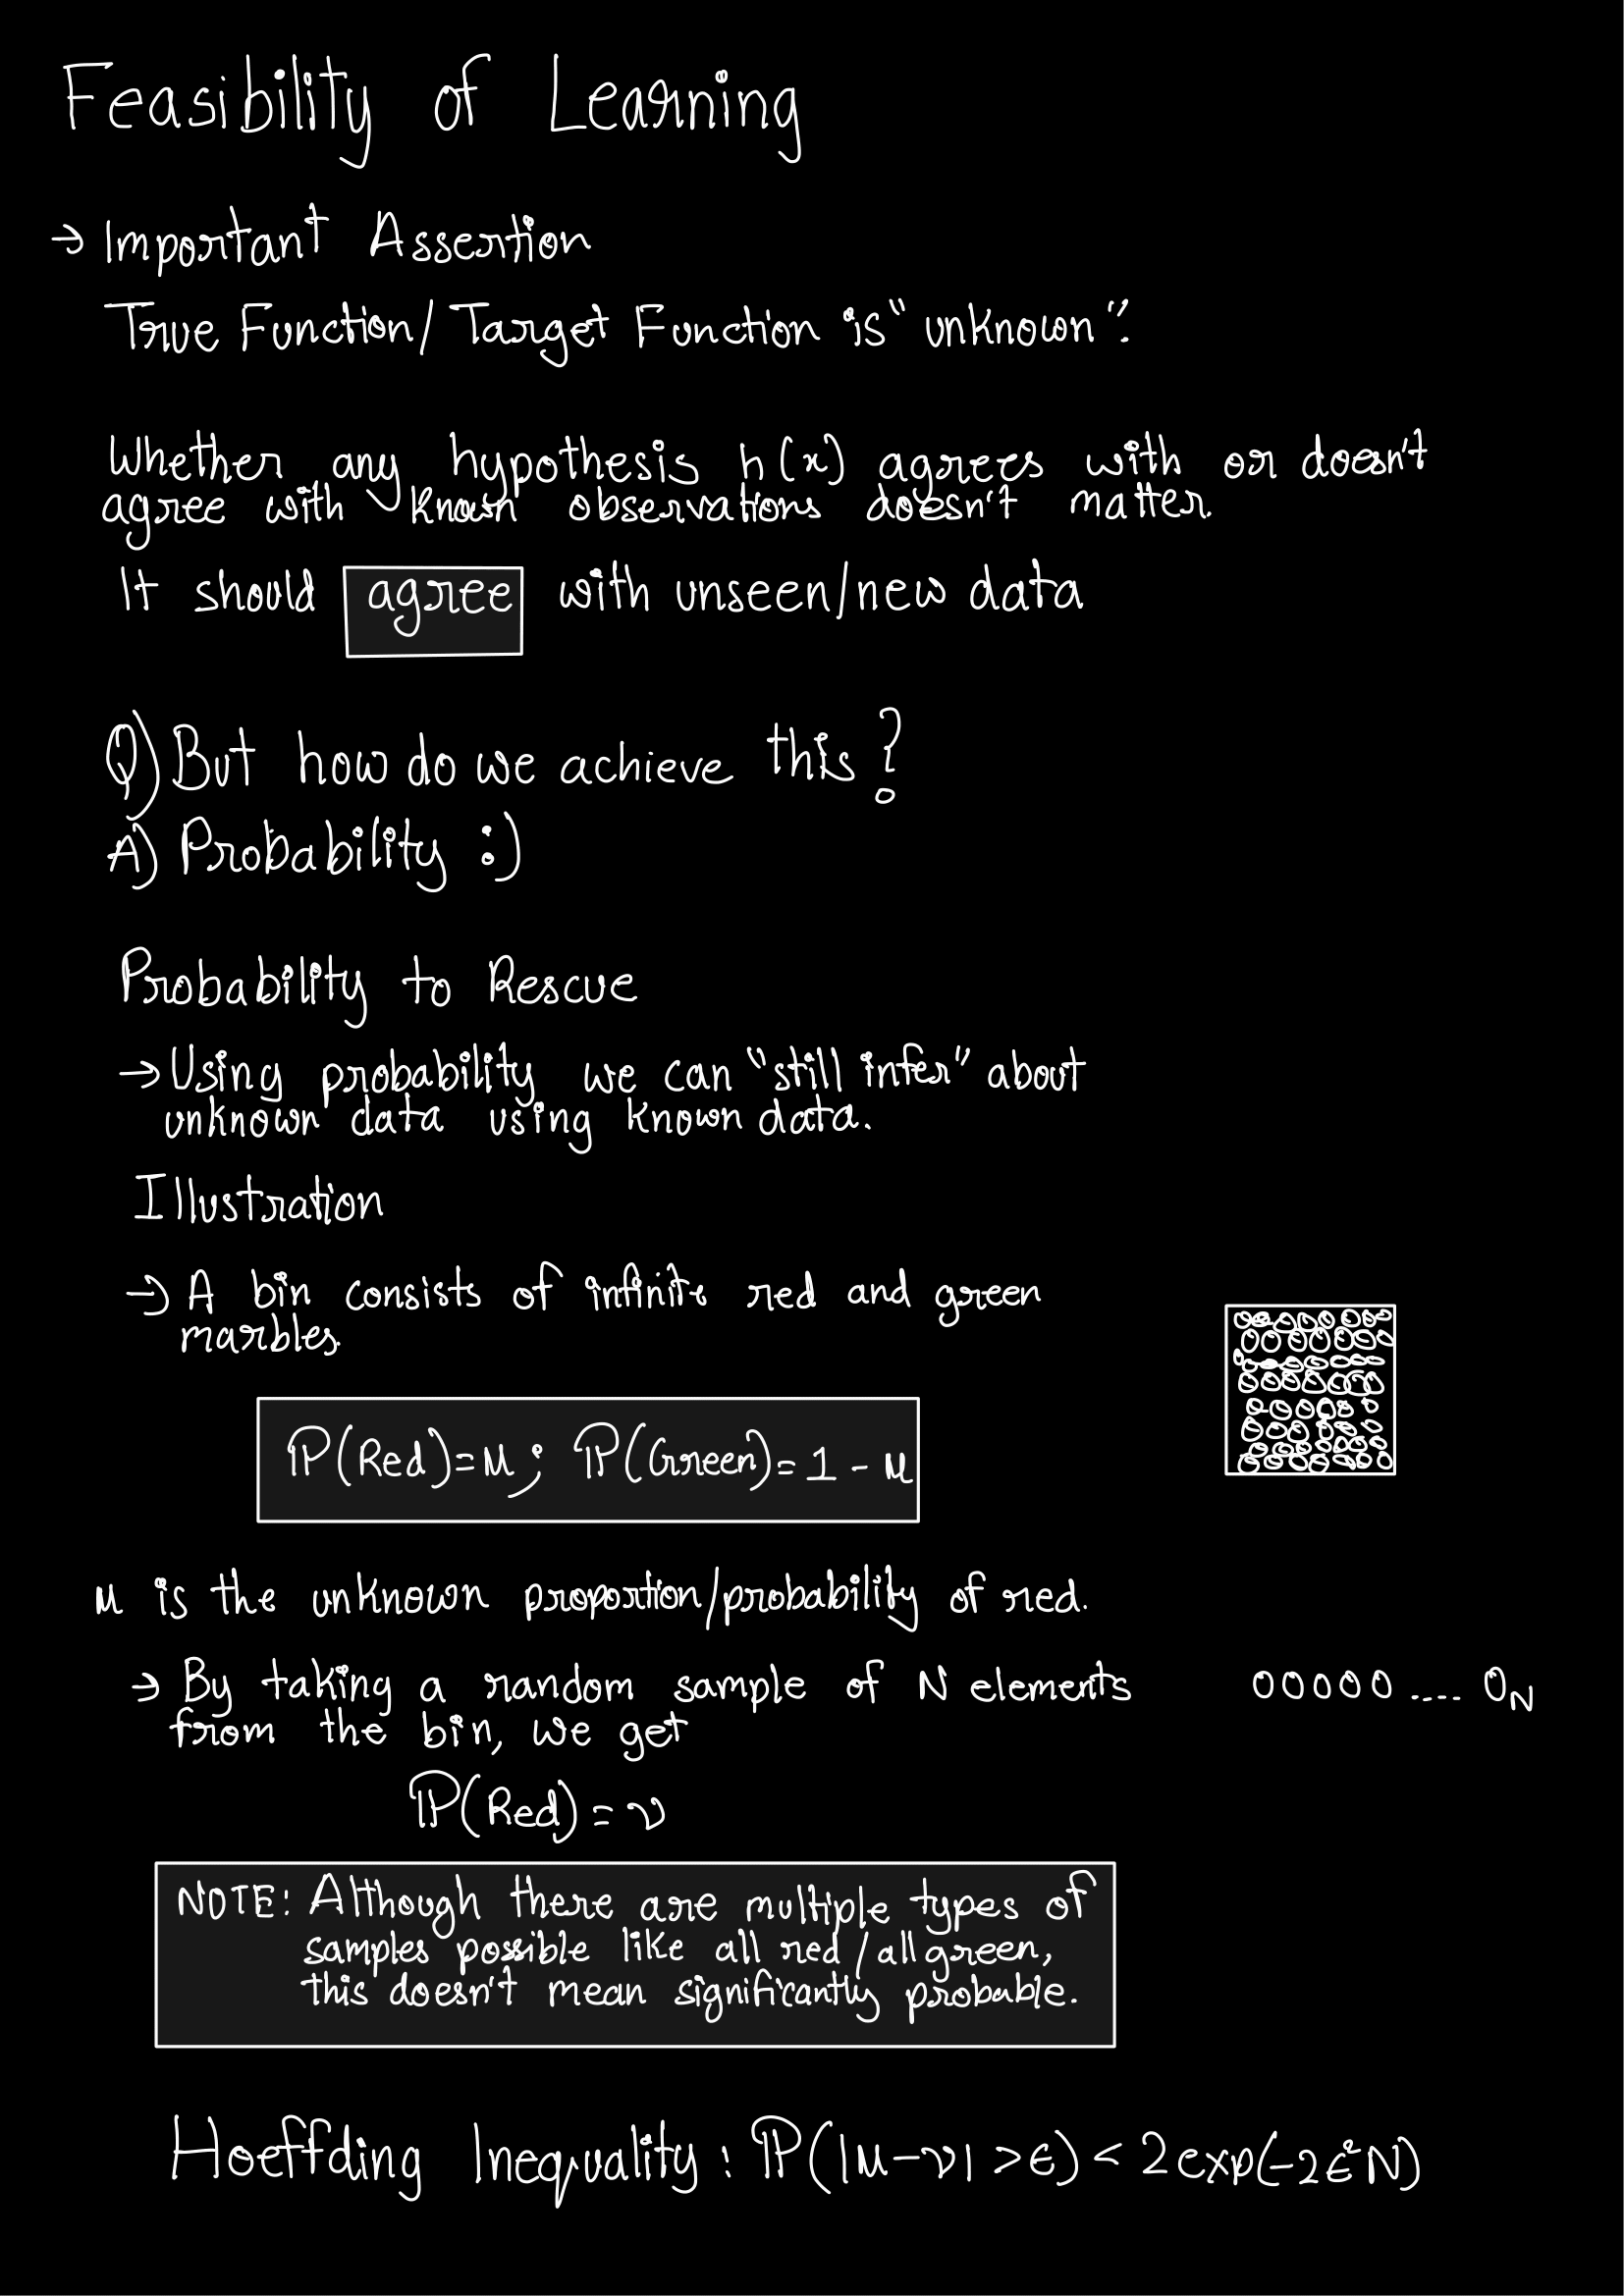 Feasibility of Learning
→ Important Assertion
True Function/Target Function is "unknown".
Whether any hypothesis h(x) agrees with or doesn't
agree with known observations doesn't matter.
It should agree with unseen/new data
Q) But how do we achieve this?
A) Probability :)
Probability to Rescue
→ Using probability we can "still infer" about
unknown data using known data.
Illustration
→ A bin consists of infinite red and green
marbles.
ℙ(Red)=μ; ℙ(Green)=1-μ
μ is the unknown proportion/probability of red.
→ By taking a random sample of N elements
from the bin, we get
OOOOO .... O_N
ℙ(Red)=ν
NOTE: Although there are multiple types of
samples possible like all red/all green,
this doesn't mean significantly probable.
Hoeffding Inequality: ℙ(|μ-ν|>ϵ)<2exp(-2ϵ²N)